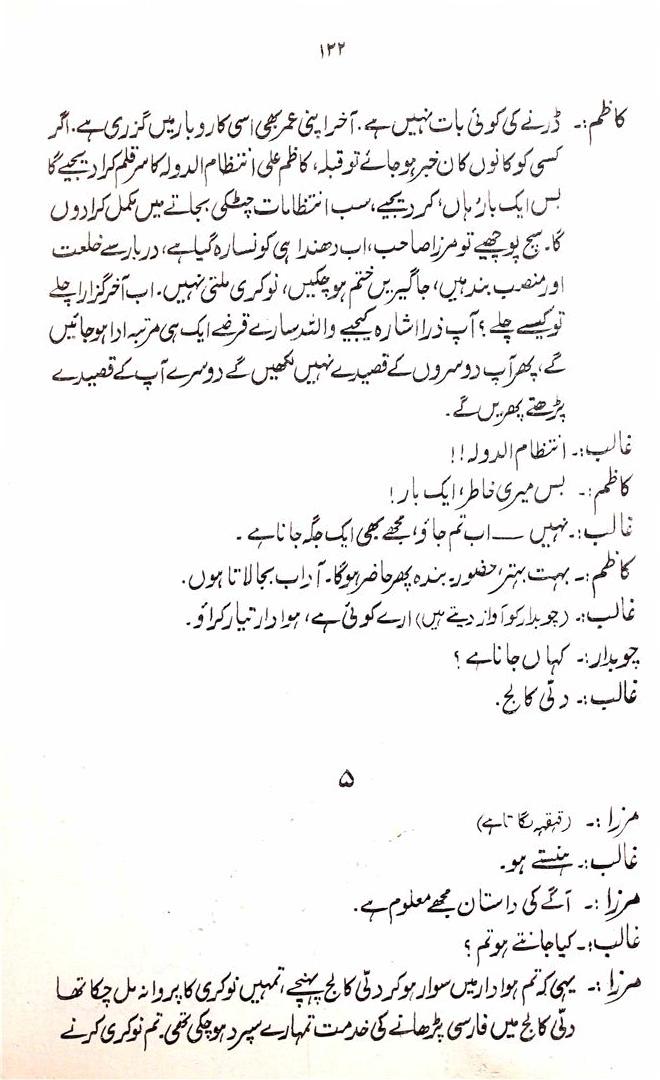 ۱۲۲
کاظم:۔ ڈرنے کی کوئی بات نہیں ہے۔ آخر اپنی عمر بھی اسی کاروبار میں گزری ہے۔ اگر
کسی کو کانوں کان خبر ہو جائے تو قبلہ، کاظم علی انتظام الدولہ کا سر قلم کرا دیجیے گا
بس ایک بار 'ہاں' کر دیجیے، سب انتظامات چٹکی بجاتے میں مکمل کرا دوں
گا۔ سچ پوچھیے تو مرزا صاحب، اب دھندا ہی کونسا رہ گیا ہے، دربار سے خلعت
اور منصب بند ہیں، جاگیریں ختم ہو چکیں، نوکری ملتی نہیں۔ اب آخر گزارا چلے
تو کیسے چلے؟ آپ ذرا اشارہ کیجیے واللہ سارے قرضے ایک ہی مرتبہ ادا ہو جائیں
گے، پھر آپ دوسروں کے قصیدے نہیں لکھیں گے دوسرے آپ کے قصیدے
پڑھتے پھریں گے۔
غالب:۔ انتظام الدولہ!!
کاظم:۔ بس میری خاطر، ایک بار!
غالب:۔ نہیں — اب تم جاؤ، مجھے بھی ایک جگہ جانا ہے۔
کاظم:۔ بہت بہتر، حضور۔ بندہ پھر حاضر ہوگا۔ آداب بجا لاتا ہوں۔
غالب:۔ (چوبدار کو آواز دیتے ہیں) ارے کوئی ہے، ہوادار تیار کراؤ۔
چوبدار:۔ کہاں جانا ہے؟
غالب:۔ دلّی کالج۔
۵
مرزا:۔ (قہقہہ لگاتا ہے)
غالب:۔ ہنستے ہو۔
مرزا:۔ آگے کی داستان مجھے معلوم ہے۔
غالب:۔ کیا جانتے ہو تم؟
مرزا:۔ یہی کہ تم ہوادار میں سوار ہو کر دلّی کالج پہنچے، تمہیں نوکری کا پروانہ مل چکا تھا
دلّی کالج میں فارسی پڑھانے کی خدمت تمہارے سپرد ہو چکی تھی۔ تم نوکری کرنے